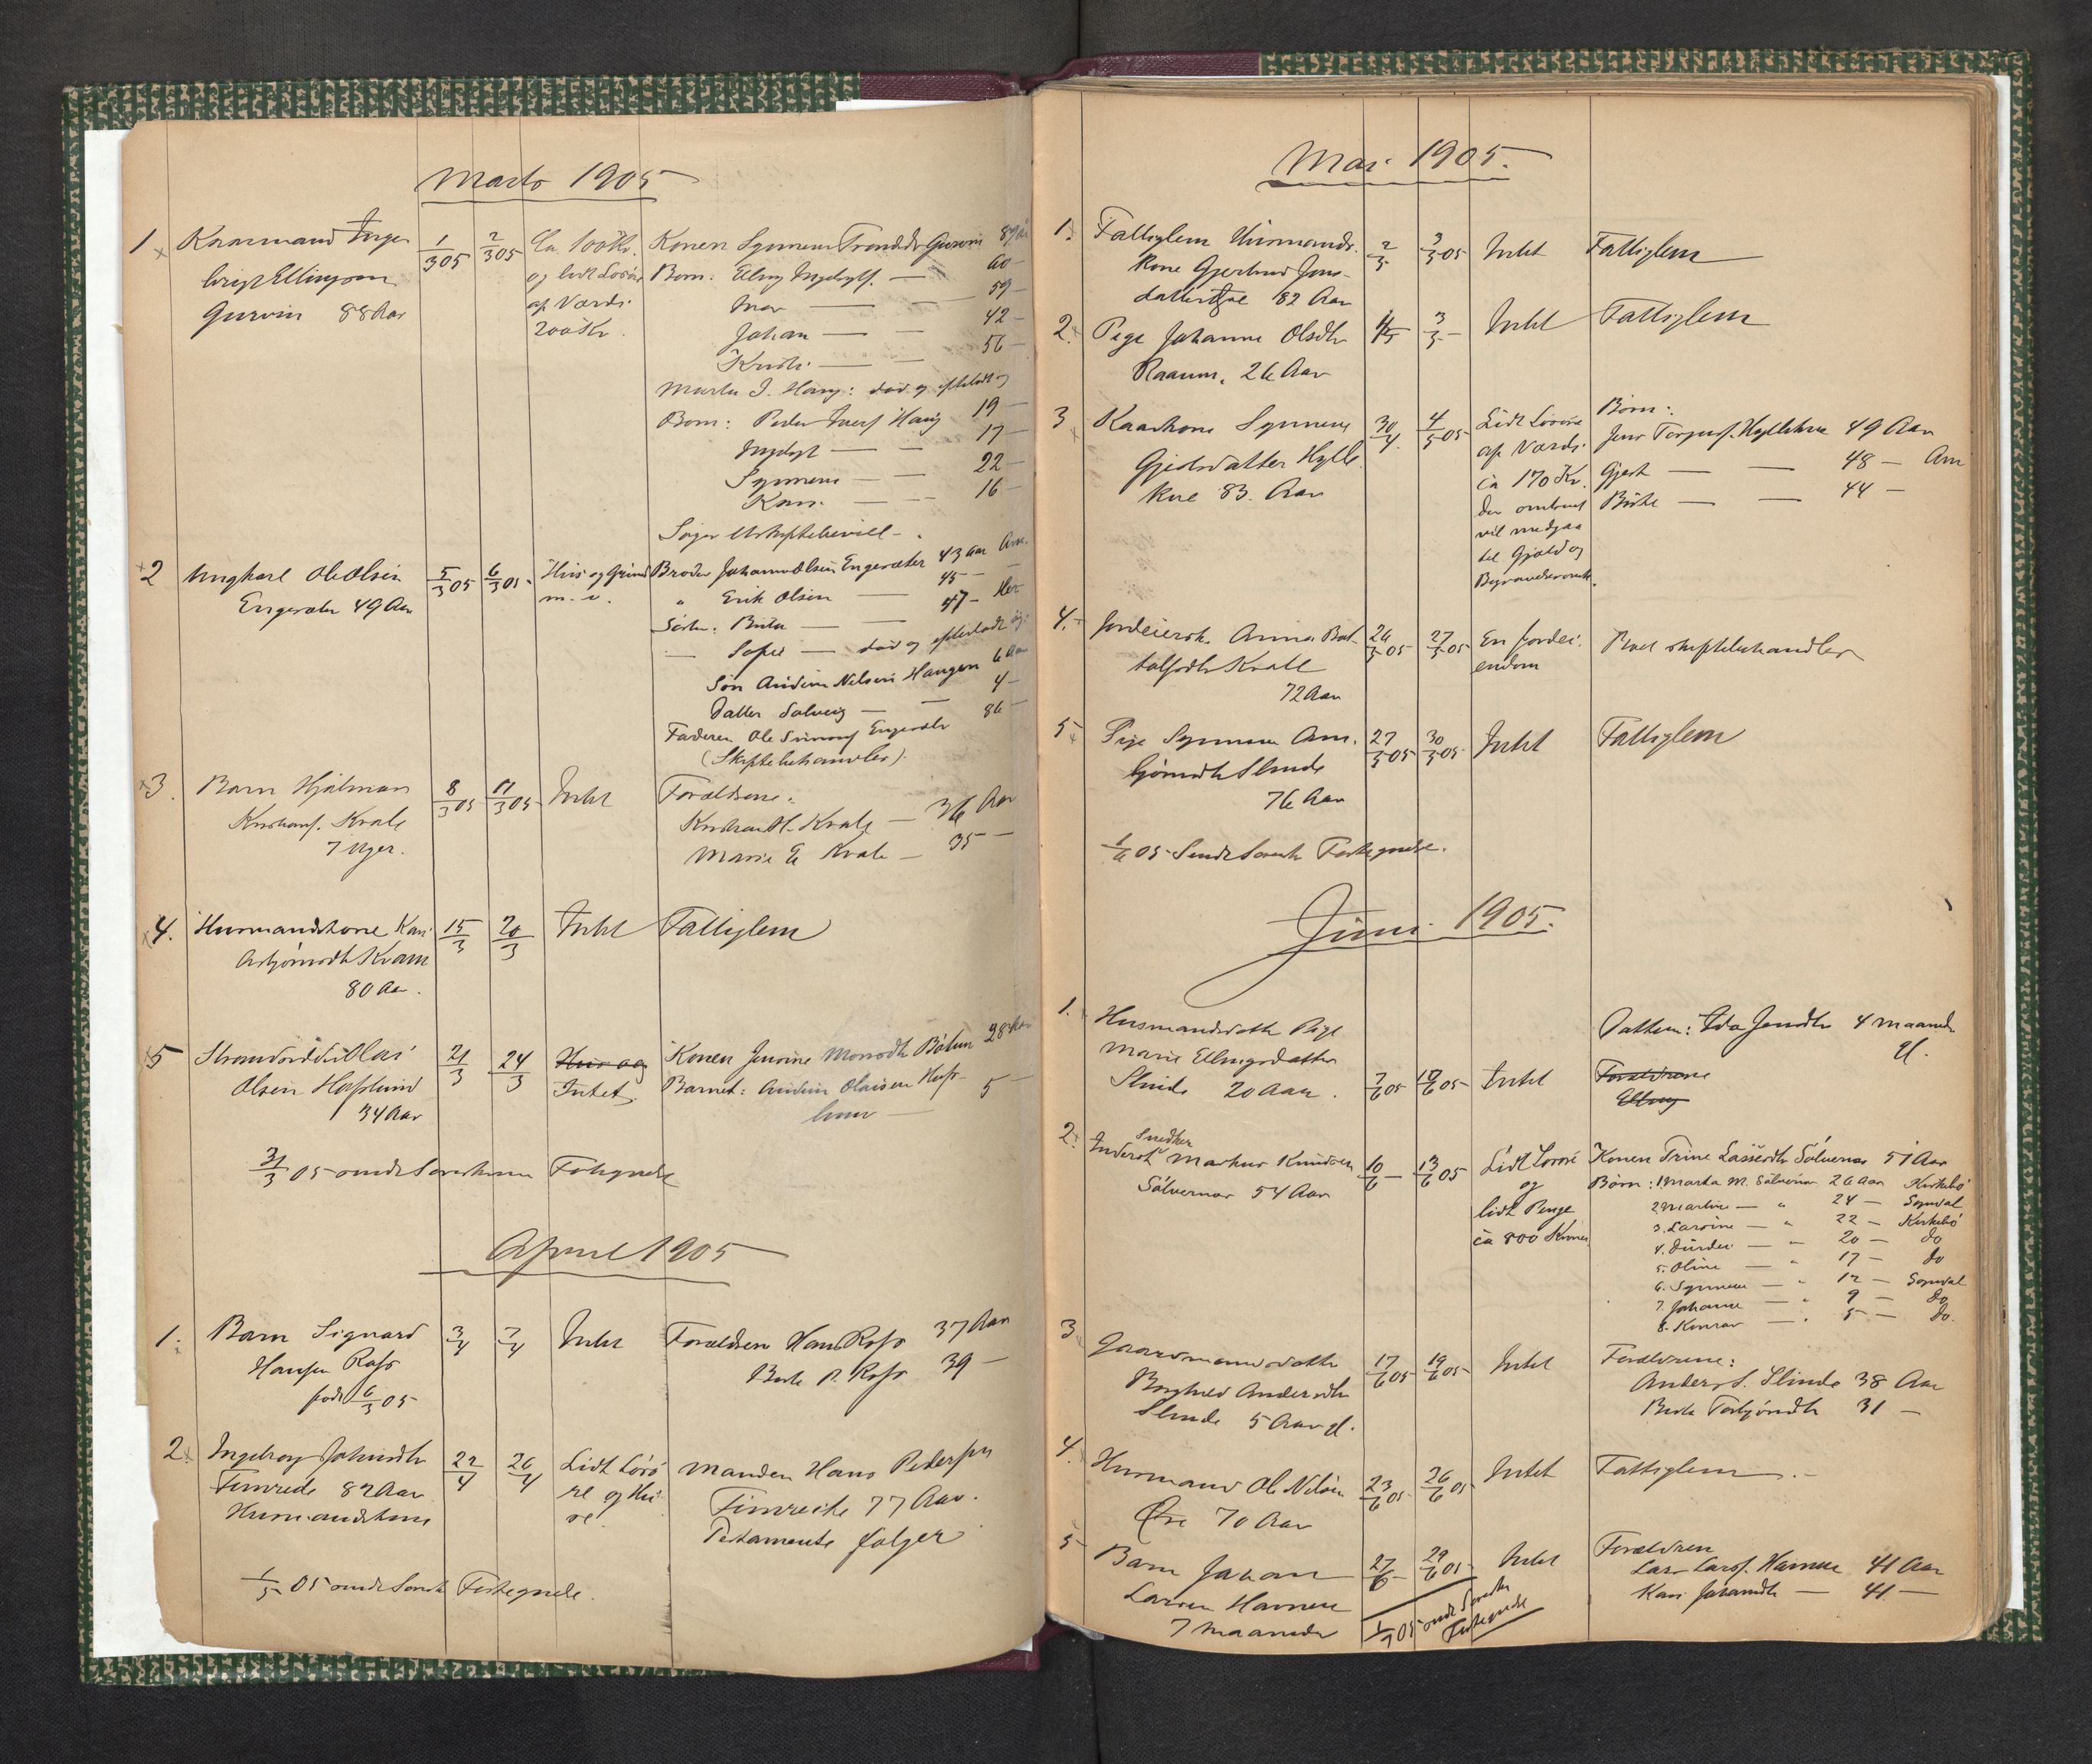 Marts 1905
1 Kaarmand Inge-
brigt Ellingsen
Gurvin 88 Aar
1/3 05
2/3 05
Ca 100 Kr.
og lidt Løsøre
af Værdi
200 Kr.
Konen Synneva Trondsdtr Gurvin
Børn: Elling Ingebrigts. — 60 —
Iver — — 59 —
Johan — — 42 —
Kristi — — 56 —
Marta I. Haug: død og efterladt sig
Børn: Peder Iversf Haug 19 —
Ingebrigt — — 17 —
Synneva — — 22 —
Kari — — 16 —
Søger Uskiftebevill.
2 Ungkarl Ole Olsen
Engesæter 49 Aar
5/3 05
6/3 05
Hus og Grund
m. v.
Broder Johannes Olsen Engesæter 43 Aar Am.
" Erik Olsen — 45 — —
Søster: Brita — — 47 — Her
— Sofie — død og efterladt sig:
Søn Andreas Nilsen Haugen 6 Aar
Datter Solveig — — 4 —
Faderen Ole Simons Engesæter 86 —
(Skiftebehandles).
3. Barn Hjalmar
Kristians. Kvale
7 Uger.
8/3 05
11/3 05
Intet
Forældrene:
Kristian H. Kvale — 36 Aar
Marie E. Kvale — 35 —
4. Husmandskone Kari
Asbjørnsdtr Kvam
80 Aar.
15/3
20/3
Intet
Fattiglem
5 Strandsidder Olai
Olsen Husslund
34 Aar
21/3
24/3
Hus og
Intet.
Konen Jensine Monsdtr Bølum 28 Aar
Barnet: Olaisen Hus- 5 —
lund —
31/3 05 sendt Sorenskriveren Fortegnelse
April 1905
1. Barn Signard
Hansen Rafs
født 6/3 05
3/4
7/4
Intet
Forældren Hans Rafs 37 Aar
Berte P. Rafs 39 —
2. Ingeborg Johnsdtr
Fimreide 82 Aar
Husmandskone
22/4
26/4
Lidt Løsø-
re og Hu-
se
Manden Hans Pedersen
Fimreite 77 Aar.
Testamente følger
1/5 05 sendt Sorensk Fortegnelse.
Mai 1905.
1. Fattiglem Husmands-
kone Gjertrud Jons-
datter 82 Aar
2/5
3/5 05
Intet
Fattiglem
2. Pige Johanne Olsdtr
Raaum, 26 Aar
1/5
3/5 —
Intet
Fattiglem
3 Kaarkone Synneva
Gjestsdatter Hylle-
kve 83 Aar
30/4
4/5 05
Lidt Løsøre
af Værdi
ca 170 Kr.
der omtrent
vil medgaa
til Gjæld og
Begravelsesomk.
Børn:
Jens Torgersf. Hyllekve 49 Aar
Gjest — — 48 — Am
Brite — — 44 —
4. Jordeiersk. Anna Bot-
tolfsdtr Kvale
72 Aar
26/5 05
27/5 05
En Jordei-
endom
Privat skiftebehandles
5 Pige Synneva Am-
bjørnsdtr Slinde
76 Aar
27/5 05
30/5 05
Intet
Fattiglem
1/6 05 Sendt Sorensk Fortegnelse.
Juni 1905.
1. Husmandsdatter Pige
Marie Ellingsdatter
Slinde 20 Aar.
7/6 05
12/6 05
Intet
Datteren: Ida Jensdtr 4 Maaneder
gl.
Forældrene
Elling
2. Snedker
Inderst Markus Knudsen
Sølvernes 54 Aar
10/6 —
13/6 05
Lidt Løsøre
og
lidt Penge
ca 800 Kroner
Konen Trine Lassesdtr Sølvernes 51 Aar
Børn: 1. Marta M. Sølvernes 26 Aar Kirkebø
2. Martine — " 24 — Sogndal
3. Larsine — " 22 — Kirkebø
4. Durdei — " 20 — do
5. Oline — " 17 — do
6. Synneva — " 12 — Sogndal
7. Johanne — " 9 — do
8. Konrad — " 5 — do
3. Gaardmandsdatter
Borghild Andersdtr
Slinde 5 Aar gl.
17/6 05
19/6 05
Intet
Forældrene:
Anders S. Slinde 38 Aar
Berta Torbjørndtr 31 —
4. Husmand Ole Nilsen
Øre 70 Aar
23/6 05
26/6 05
Intet
Fattiglem.
5 Barn Johan
Larsen Hamre
7 Maaneder
27/6 —
29/6 05
Intet
Forældren
Lars Larsf. Hamre 41 Aar
Kari Johansdtr — 41 —
1/7 05 sendt Sorenskr
Fortegnelse